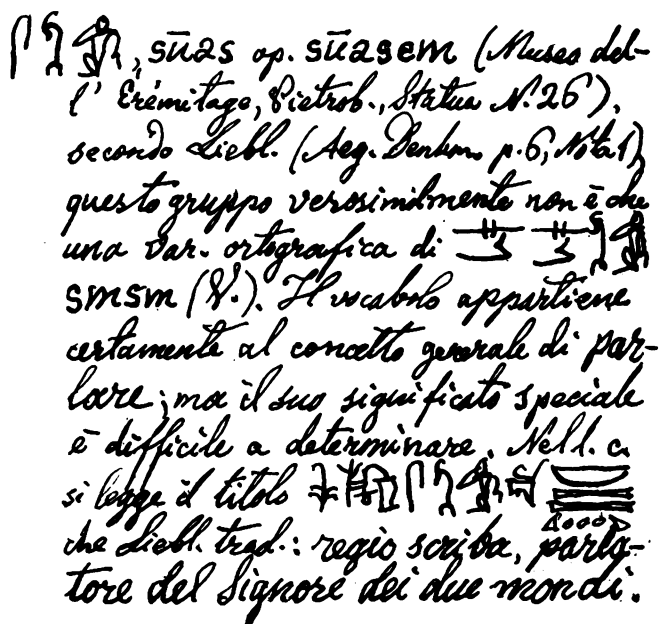 , sūas op. sūasem (Museo del-
l' Erémitage, Pietrob., Statua N. 26),
secondo Liebl. (Aeg. Denkm. p. 6, Nota 1)
questo gruppo verosimilmente non è che
una var. ortografica di
smsm (V.). Il vocabolo appartiene
certamente al concetto generale di par-
lare; ma il suo significato speciale
è difficile a determinare. Nell. c.
si legge il titolo
che Liebl. trad.: regio scriba, parla-
tore del Signore dei due mondi.